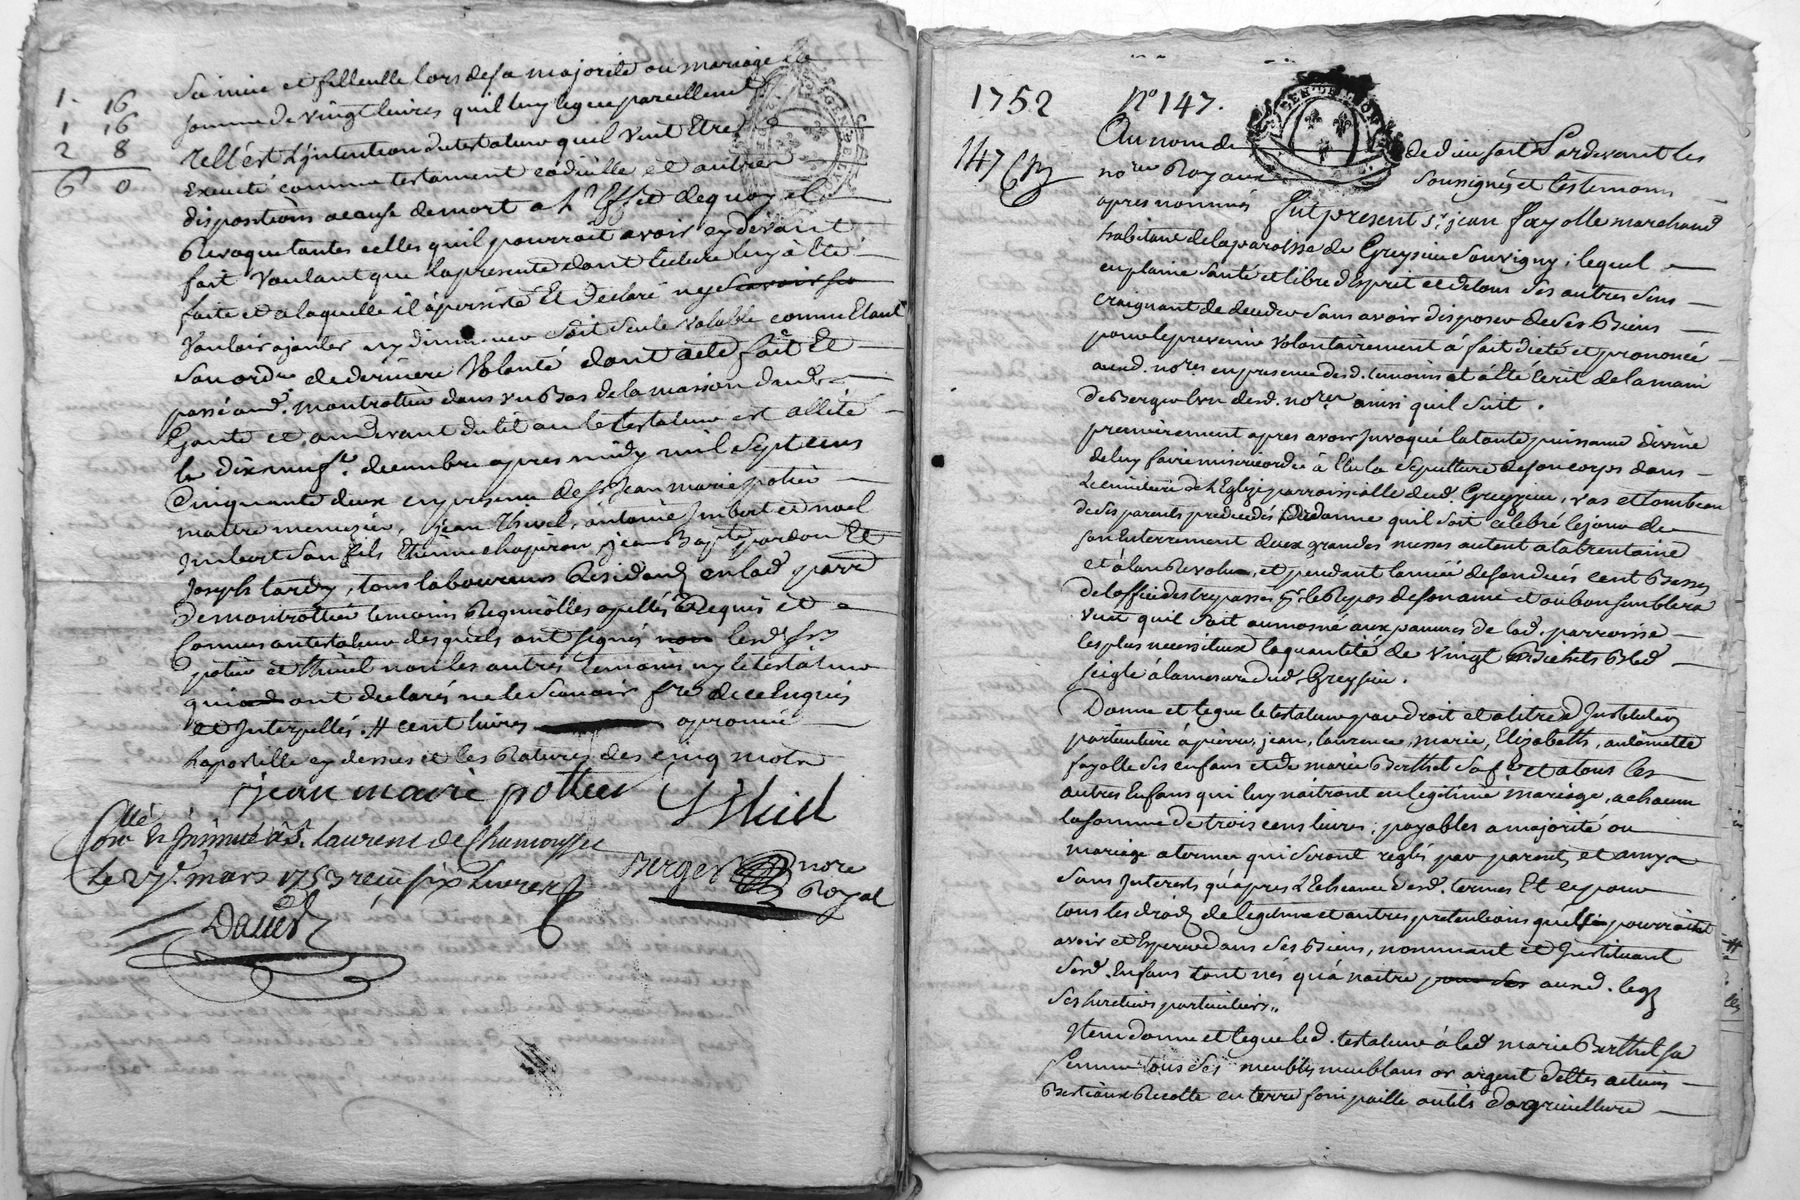 1. 16
1 16
2 8
6 0
Sa niece et filleulle lors de sa majorité ou mariage la
somme de vingt livres quil luy legue pareillement
Telle est l'jntention du testateur quil veut Etre
Executé comme testament codicille et autres
dispositions a cause de mort a l'Effet de quoy il
Revoque toutes celles quil pourroit avoir cy devant
fait Voulant que la presente dont lecture luy à êté
faite et a laquelle il à persisté Et declaré ny
Vouloir ajouter ny diminuer soit seule valable comme Etant
Son ordre de derniere Volonté dont acte fait Et
passé aud. montrottier dans un Bas de la maison dud.
et au devant du lit ou le testateur est allité
le dixneufe. decembre apres midy mil sept cens
Cinquante deux en presence de sr. jean marie potier
maitre menuisier, jean thivel, antoine jmbert et noel
jmbert son fils Etienne chaperon, jean Bapte. pardon Et
Joseph tardy, tous laboureurs Residands en lad parr.
de montrottier temoins Requis et
connus au testateur desquels ont signés lesd. srs.
potier et thivel non les autres temoins ny le testateur
qui ont declarés ne le Scavoir fre. de ce Enquis
et Interpellés. # cent livres approuvé
l'apostille cy dessus et les Ratures des cinq mots
jean marie pottier
thivel
Conllé. & jnsinué à St. Laurent de Chamousset
le 27e. mars 1753 reçu six livres
Berger nore Royal
1752 No 147.
147
Au nom de de dieu soit Pardevant les
nores Royaux soussignés et les temoins
apres nommés fut present sr. jean fayolle marchand
habitant de la paroisse de Greysieu Souvigny; lequel
en plaine Santé et libre d'Esprit et de tous ses autres sens
craignant de deceder sans avoir disposer de ses Biens
pour le prevenir volontairement à fait dicté et prononcé
auxd. nores. en presence desd. temoins et à êté Ecrit de la main
de Berger l'un desd. nores. ainsi quil suit.
premierement apres avoir jnvoqué la toute puissance divine
de luy faire misericorde à Elu la Sepulture de son corps dans
Le cimetiere de l'Eglise parroissialle dud. Greyzieu, vas et tombeau
de ses parents predecedés ordonne quil soit celebré le jour de
son Enterrement deux grandes messes autent a la trentaine
et à l'an Revolu, et pendant l'année de son deces cent Basses
de l'office des trepassés pr. le Repos de son ame et ou bon semblera
veut quil soit aumosné aux pauvres de lad. parroisse
les plus necessiteux la quantité de vingt Bichets Bled
seigle à la mesure dud. Greyzieu.
Donne et legue le testateur par droit et a titre d'jnstitution
particuliere à pierre, jean, laurence, marie, Elizabeth, antoinette
fayolle ses enfans et de marie Berthet sa fe. et a tous les
autres Enfans qui luy naitront en legitime mariage, a chacun
la somme de trois cens livres, payables a majorité ou
mariage a termes qui seront reglés par parents et amys
sans Interests qu'apres l'Echeance desd. termes Et ce pour
tous les droids de legitime et autres pretentions quils pourroient
avoir et Esperer dans ses Biens, nommant et jnstituant
sesd. Enfans tant nés qu'à naitre auxd. legs
ses heritiers particuliers.
Item donne et legue led. testateur à lad marie Berthet sa
femme tous ses meubles meublans or argent dettes actives
Bestiaux Recolte en terre foin paille outils d'agriculture